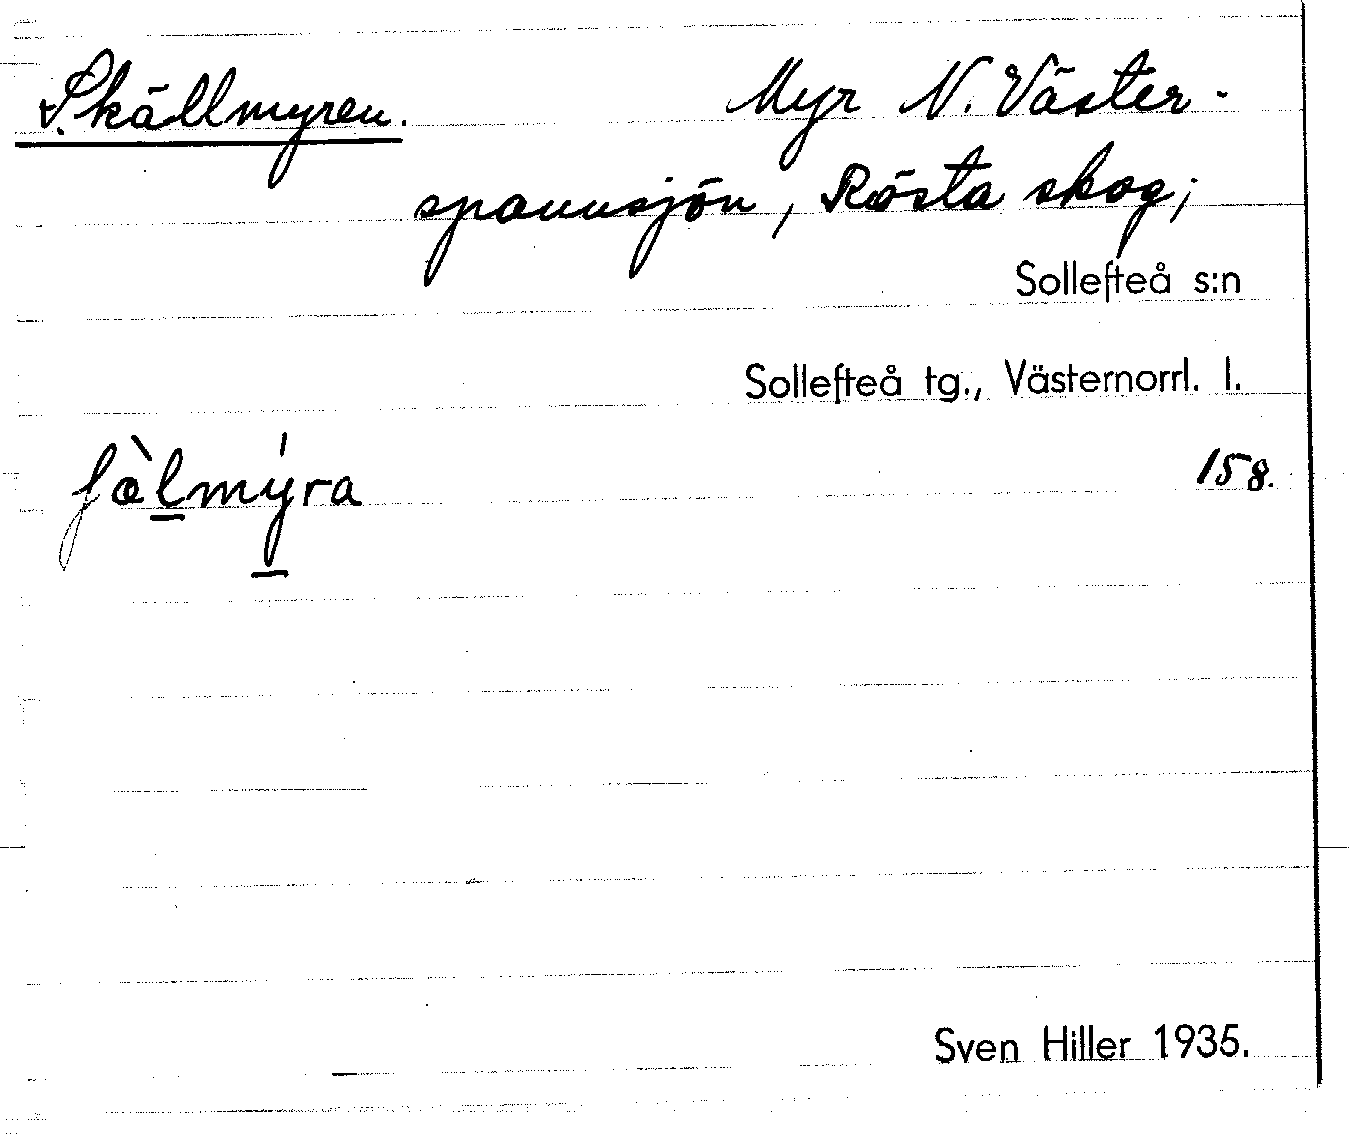 Skällmyren. Myr N. Väster-
spannsjön, Rösta skog;
Sollefteå s:n
Sollefteå tg., Västernorrl. l.
158.
Sven Hiller 1935.